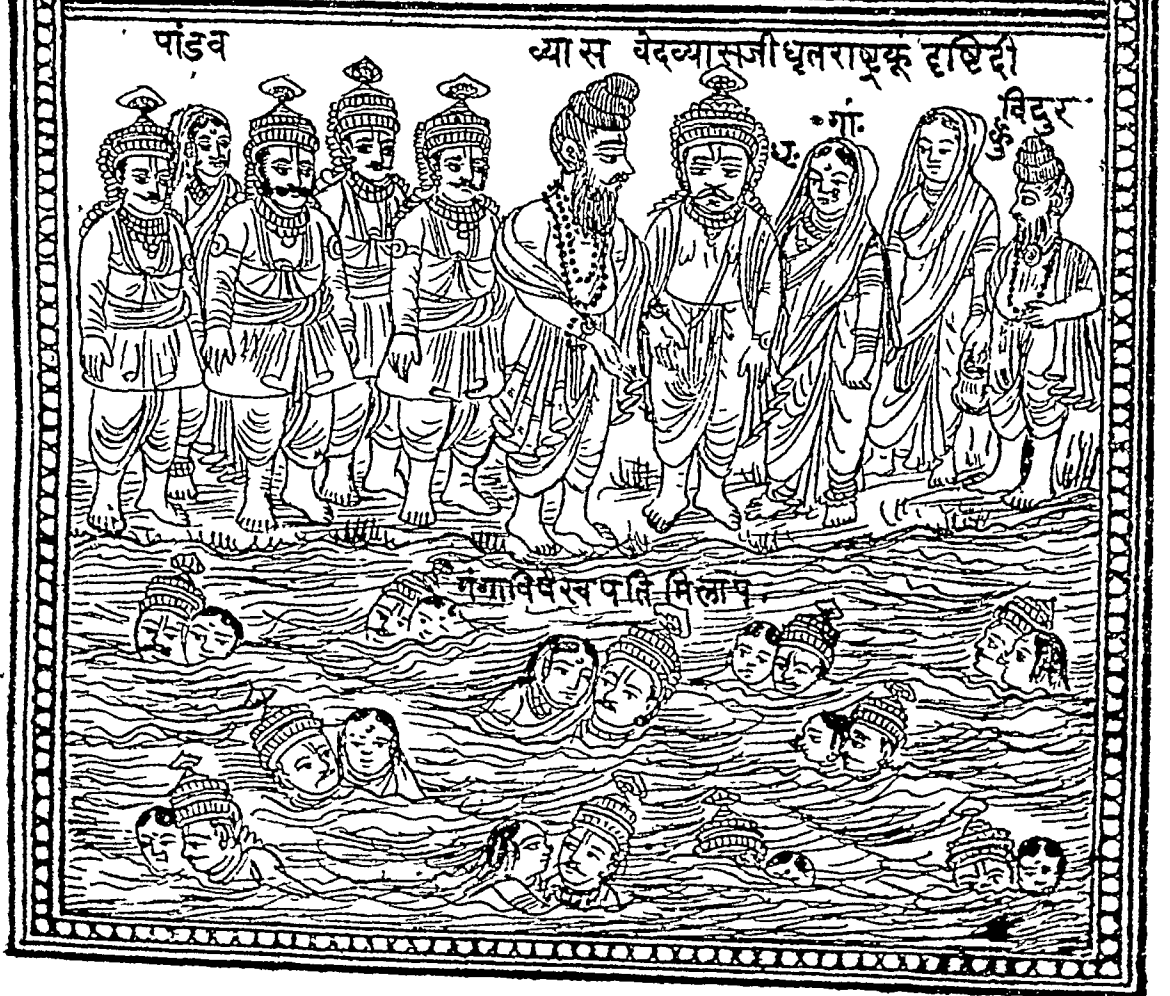 पांडव
व्यास वेदव्यासजी धृतराष्ट्रकूं दृष्टिदी
विदुर
गां.
धृ.
कुं
गंगाविषैस्वपति मिलाप.